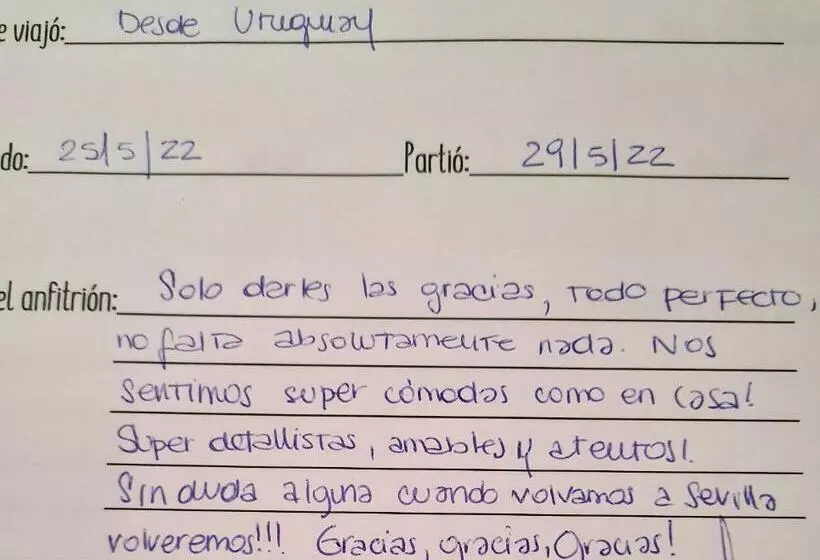 e viajó: Desde Uruguay
do: 25/5/22 Partió: 29/5/22
el anfitrión: Solo darles las gracias, todo perfecto,
no falta absolutamente nada. Nos
sentimos super cómodas como en casa!
Super detallistas, amables y atentos!.
Sin duda alguna cuando volvamos a Sevilla
volveremos!!! Gracias, gracias, Gracias!